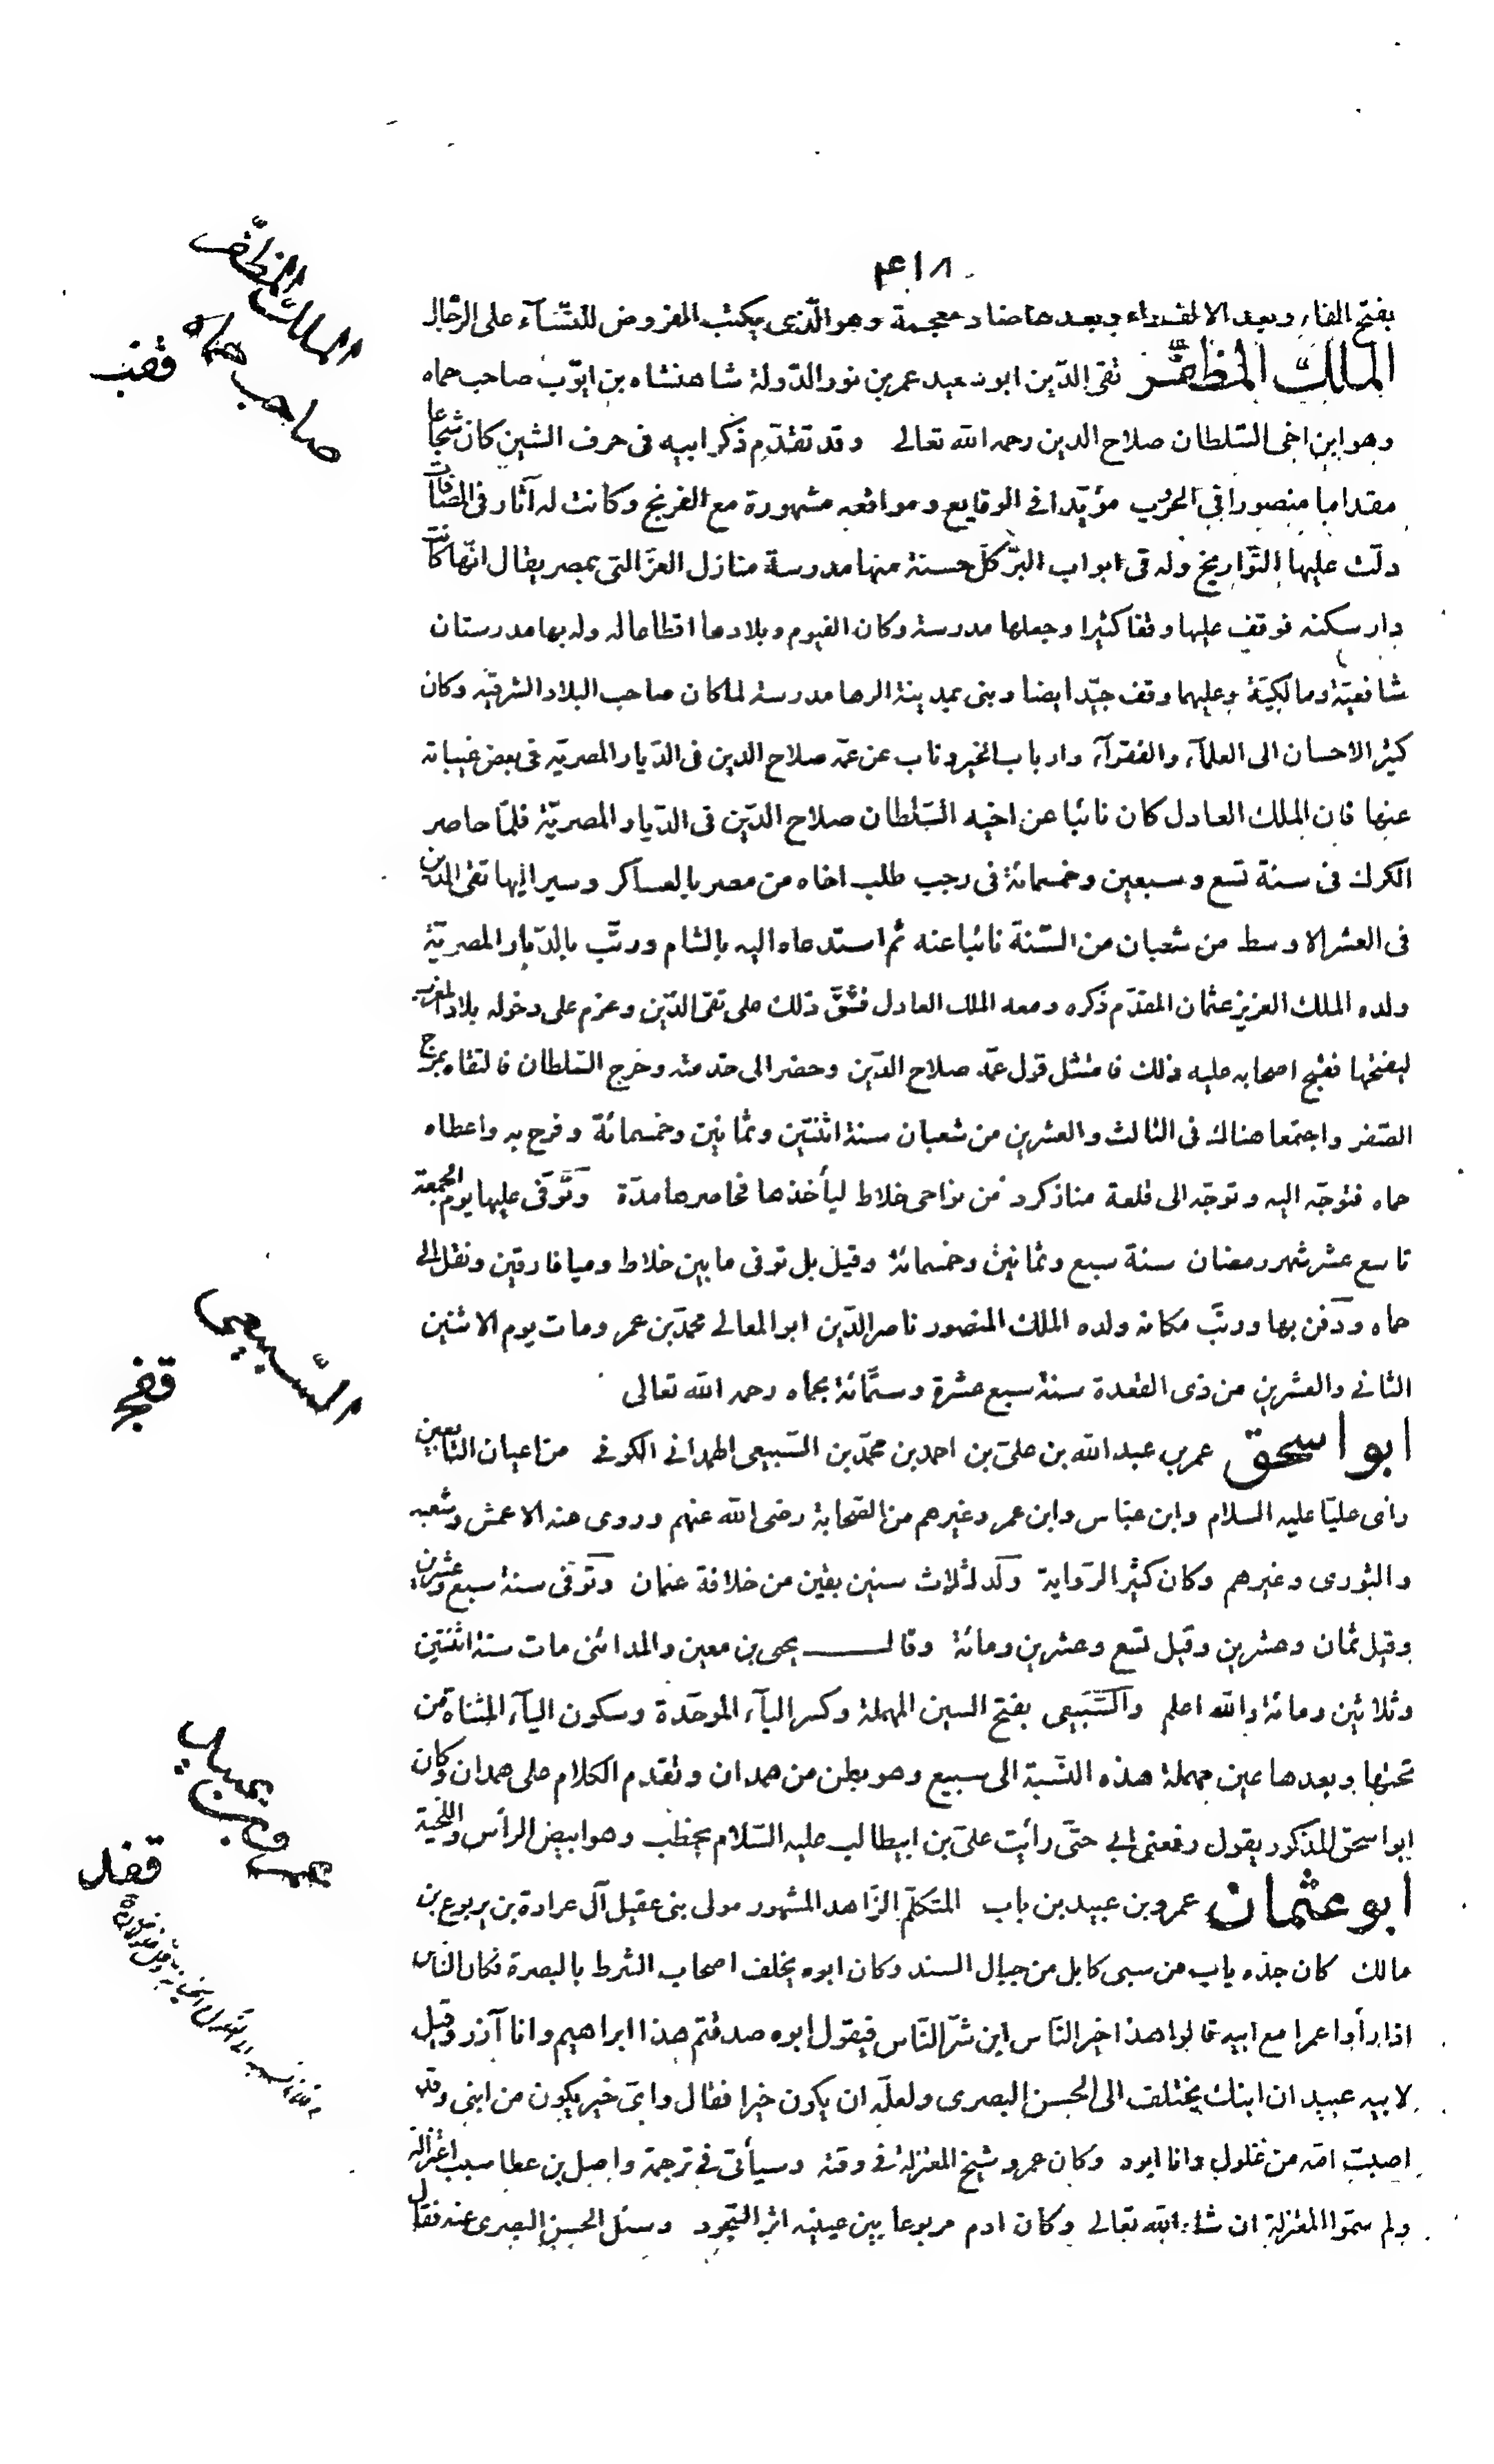 ٤١٨
بفتح الفاء وبعد الالف راء وبعدها ضاد معجمة وهو الّذى يكتب المفروض للنّسآء على الرّجال
الملك المظفّر تقى الدّين ابو سعيد عمر بن نور الدّولة شاهنشاه بن ايّوب صاحب حماه
وهو ابن اخى السّلطان صلاح الدين رحمه الله تعالى وقد تقدّم ذكر ابيه فى حرف الشين كان شجاعا
مقداما منصورا فى الحروب مؤيّدا فى الوقايع ومواقعه مشهورة مع الفرنج وكانت له آثار فى المصافّات
دلّت عليها التّواريخ وله فى ابواب البرّ كلّ حسنة منها مدرسة منازل العزّ التى بمصر يقال انّها كانت
دار سكنه فوقف عليها وقفا كثيرا وجعلها مدرسة وكان الفيوم وبلادها اقطاعا له وله بها مدرستان
شافعيّة ومالكيّة وعليهما وقف جيّد ايضا وبنى بمدينة الرها مدرسة لما كان صاحب البلاد الشرقيّه وكان
كثير الاحسان الى العلمآء والفقرآء وارباب الخير وناب عن عمّه صلاح الدين فى الدّيار المصريّه فى بعض غيباته
عنها فان الملك العادل كان نائبا عن اخيه السّلطان صلاح الدّين فى الدّيار المصريّة فلمّا حاصر
الكرك فى سنة تسع وسبعين وخمسمائة فى رجب طلب اخاه من مصر بالعساكر وسير اليها تقى الدّين
فى العشر الاوسط من شعبان من السّنة نائبا عنه ثم استدعاه اليه بالشام ورتّب بالدّيار المصريّة
ولده الملك العزيز عثمان المقدّم ذكره ومعه الملك العادل فشقّ ذلك على تقى الدّين وعزم على دخوله بلاد المغرب
ليفتحها فقبح اصحابه عليه ذلك فامتثل قول عمّه صلاح الدّين وحضر الى خدمته وخرج السّلطان فالتقاه بمرج
الصّفر واجتمعا هناك فى الثالث والعشرين من شعبان سنة اثنتين وثمانين وخمسمائة وفرح به واعطاه
حماه فتوجّه اليه وتوجّه الى قلعة منازكرد من نواحى خلاط ليأخذها فحاصرها مدّة وتوفّى عليها يوم الجمعة
تاسع عشر شهر رمضان سنة سبع وثمانين وخمسمائة وقيل بل توفى ما بين خلاط وميافارقين ونقل الى
حماه ودفن بها ورتّب مكانه ولده الملك المنصور ناصر الدّين ابو المعالى محمّد بن عمر ومات يوم الاثنين
الثانى والعشرين من ذى القعدة سنة سبع عشرة وستّمائة بحماه رحمه الله تعالى
ابو اسحق عمرو بن عبد الله بن على بن احمد بن محمّد بن السّبيعى الهمدانى الكوفى من اعيان التابعين
رأى عليّا عليه السلام وابن عبّاس وابن عمر وغيرهم من الصّحابة رضى الله عنهم وروى عنه الاعمش وشعبه
والثورى وغيرهم وكان كثير الرّواية ولد لثلاث سنين بقين من خلافة عثمان وتوفّى سنة سبع وعشرين
وقيل ثمان وعشرين وقيل تسع وعشرين ومائة وقال يحيى بن معين والمدائنى مات سنة اثنتين
وثلاثين ومائة والله اعلم والسّبيعى بفتح السين المهملة وكسر البآء الموحّدة وسكون اليآء المثناة من
تحتها وبعدها عين مهملة هذه النّسبة الى سبيع وهو بطن من همدان وتقدم الكلام على همدان وكان
ابو اسحق المذكور يقول رفعنى ابى حتّى رأيت علىّ بن ابيطالب عليه السّلام يخطب وهو ابيض الرأس واللّحية
ابو عثمان عمرو بن عبيد بن باب المتكلّم الزّاهد المشهور مولى بنى عقيل آل عرادة بن يربوع بن
مالك كان جدّه باب من سبى كابل من جبال السند وكان ابوه يخلف اصحاب الشرط بالبصرة فكان الناس
اذا رأوا عمرا مع ابيه قالوا هذا خير النّاس ابن شرّ النّاس فيقول ابوه صدقتم هذا ابراهيم وانا آذر وقيل
لابيه عبيد ان ابنك يختلف الى الحسن البصرى ولعلّه ان يكون خيرا فقال وايّ خير يكون من ابنى وقد
اصبت امّه من غلول وانا ابوه وكان عمرو شيخ المعتزلة فى وقته وسيأتى فى ترجمة واصل بن عطا سبب اعتزاله
ولم سمّوا المعتزلة ان شاء الله تعالى وكان ادم مربوعا بين عينيه اثر السّجود وسئل الحسن البصرى عنه فقال
الملك المظفّر
صاحب حماة
السّبيعى
عمرو بن عبيد